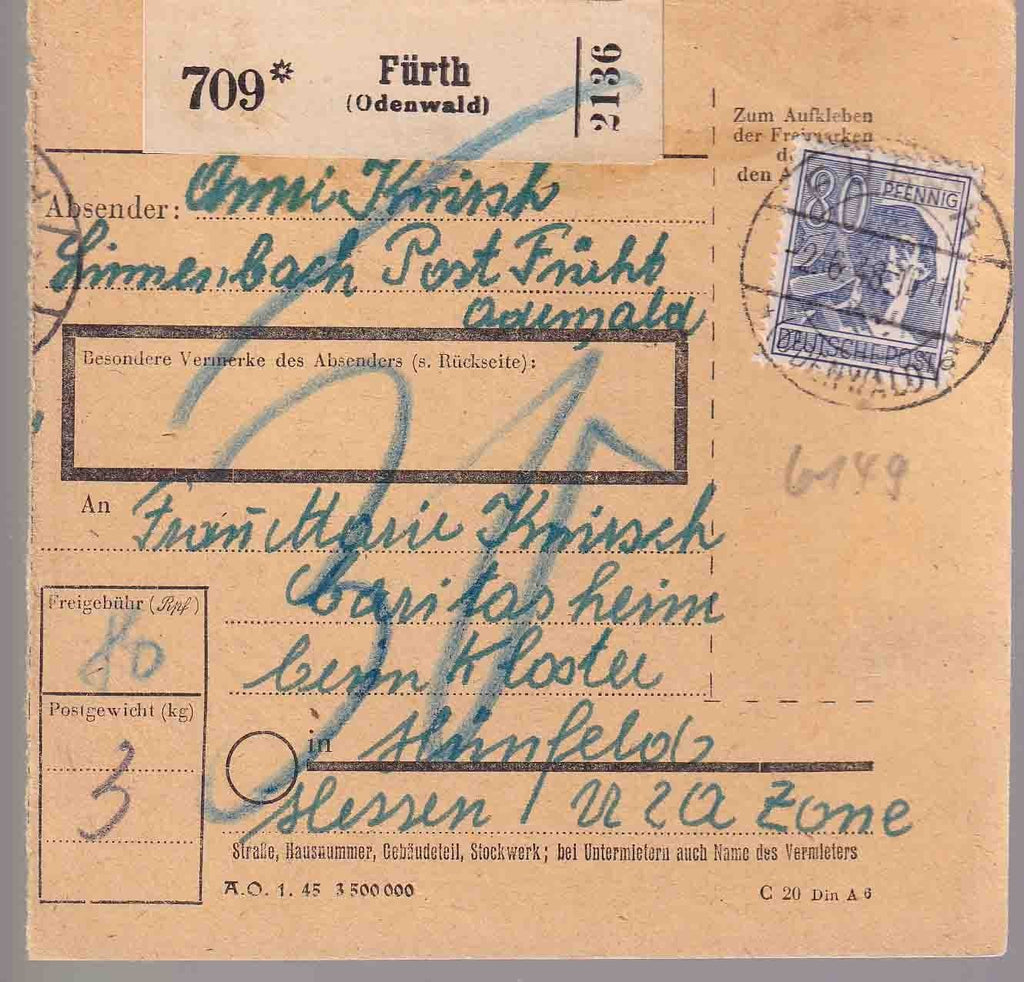 709* Fürth
(Odenwald)
2136
Zum Aufkleben
der Freimarken
den A
Absender: Anni Knirsch
Linnenbach Post Fürth
Odenwald
80 PFENNIG
DEUTSCHE POST
ODENWALD
Besondere Vermerke des Absenders (s. Rückseite):
b149
An Frau Marie Knirsch
Caritasheim
beim Kloster
in Hünfeld
Hessen / USA Zone
Freigebühr (Rpf)
80
Postgewicht (kg)
3
Straße, Hausnummer, Gebäudeteil, Stockwerk; bei Untermietern auch Name des Vermieters
A.O. 1. 45 3 500 000
C 20 Din A 6